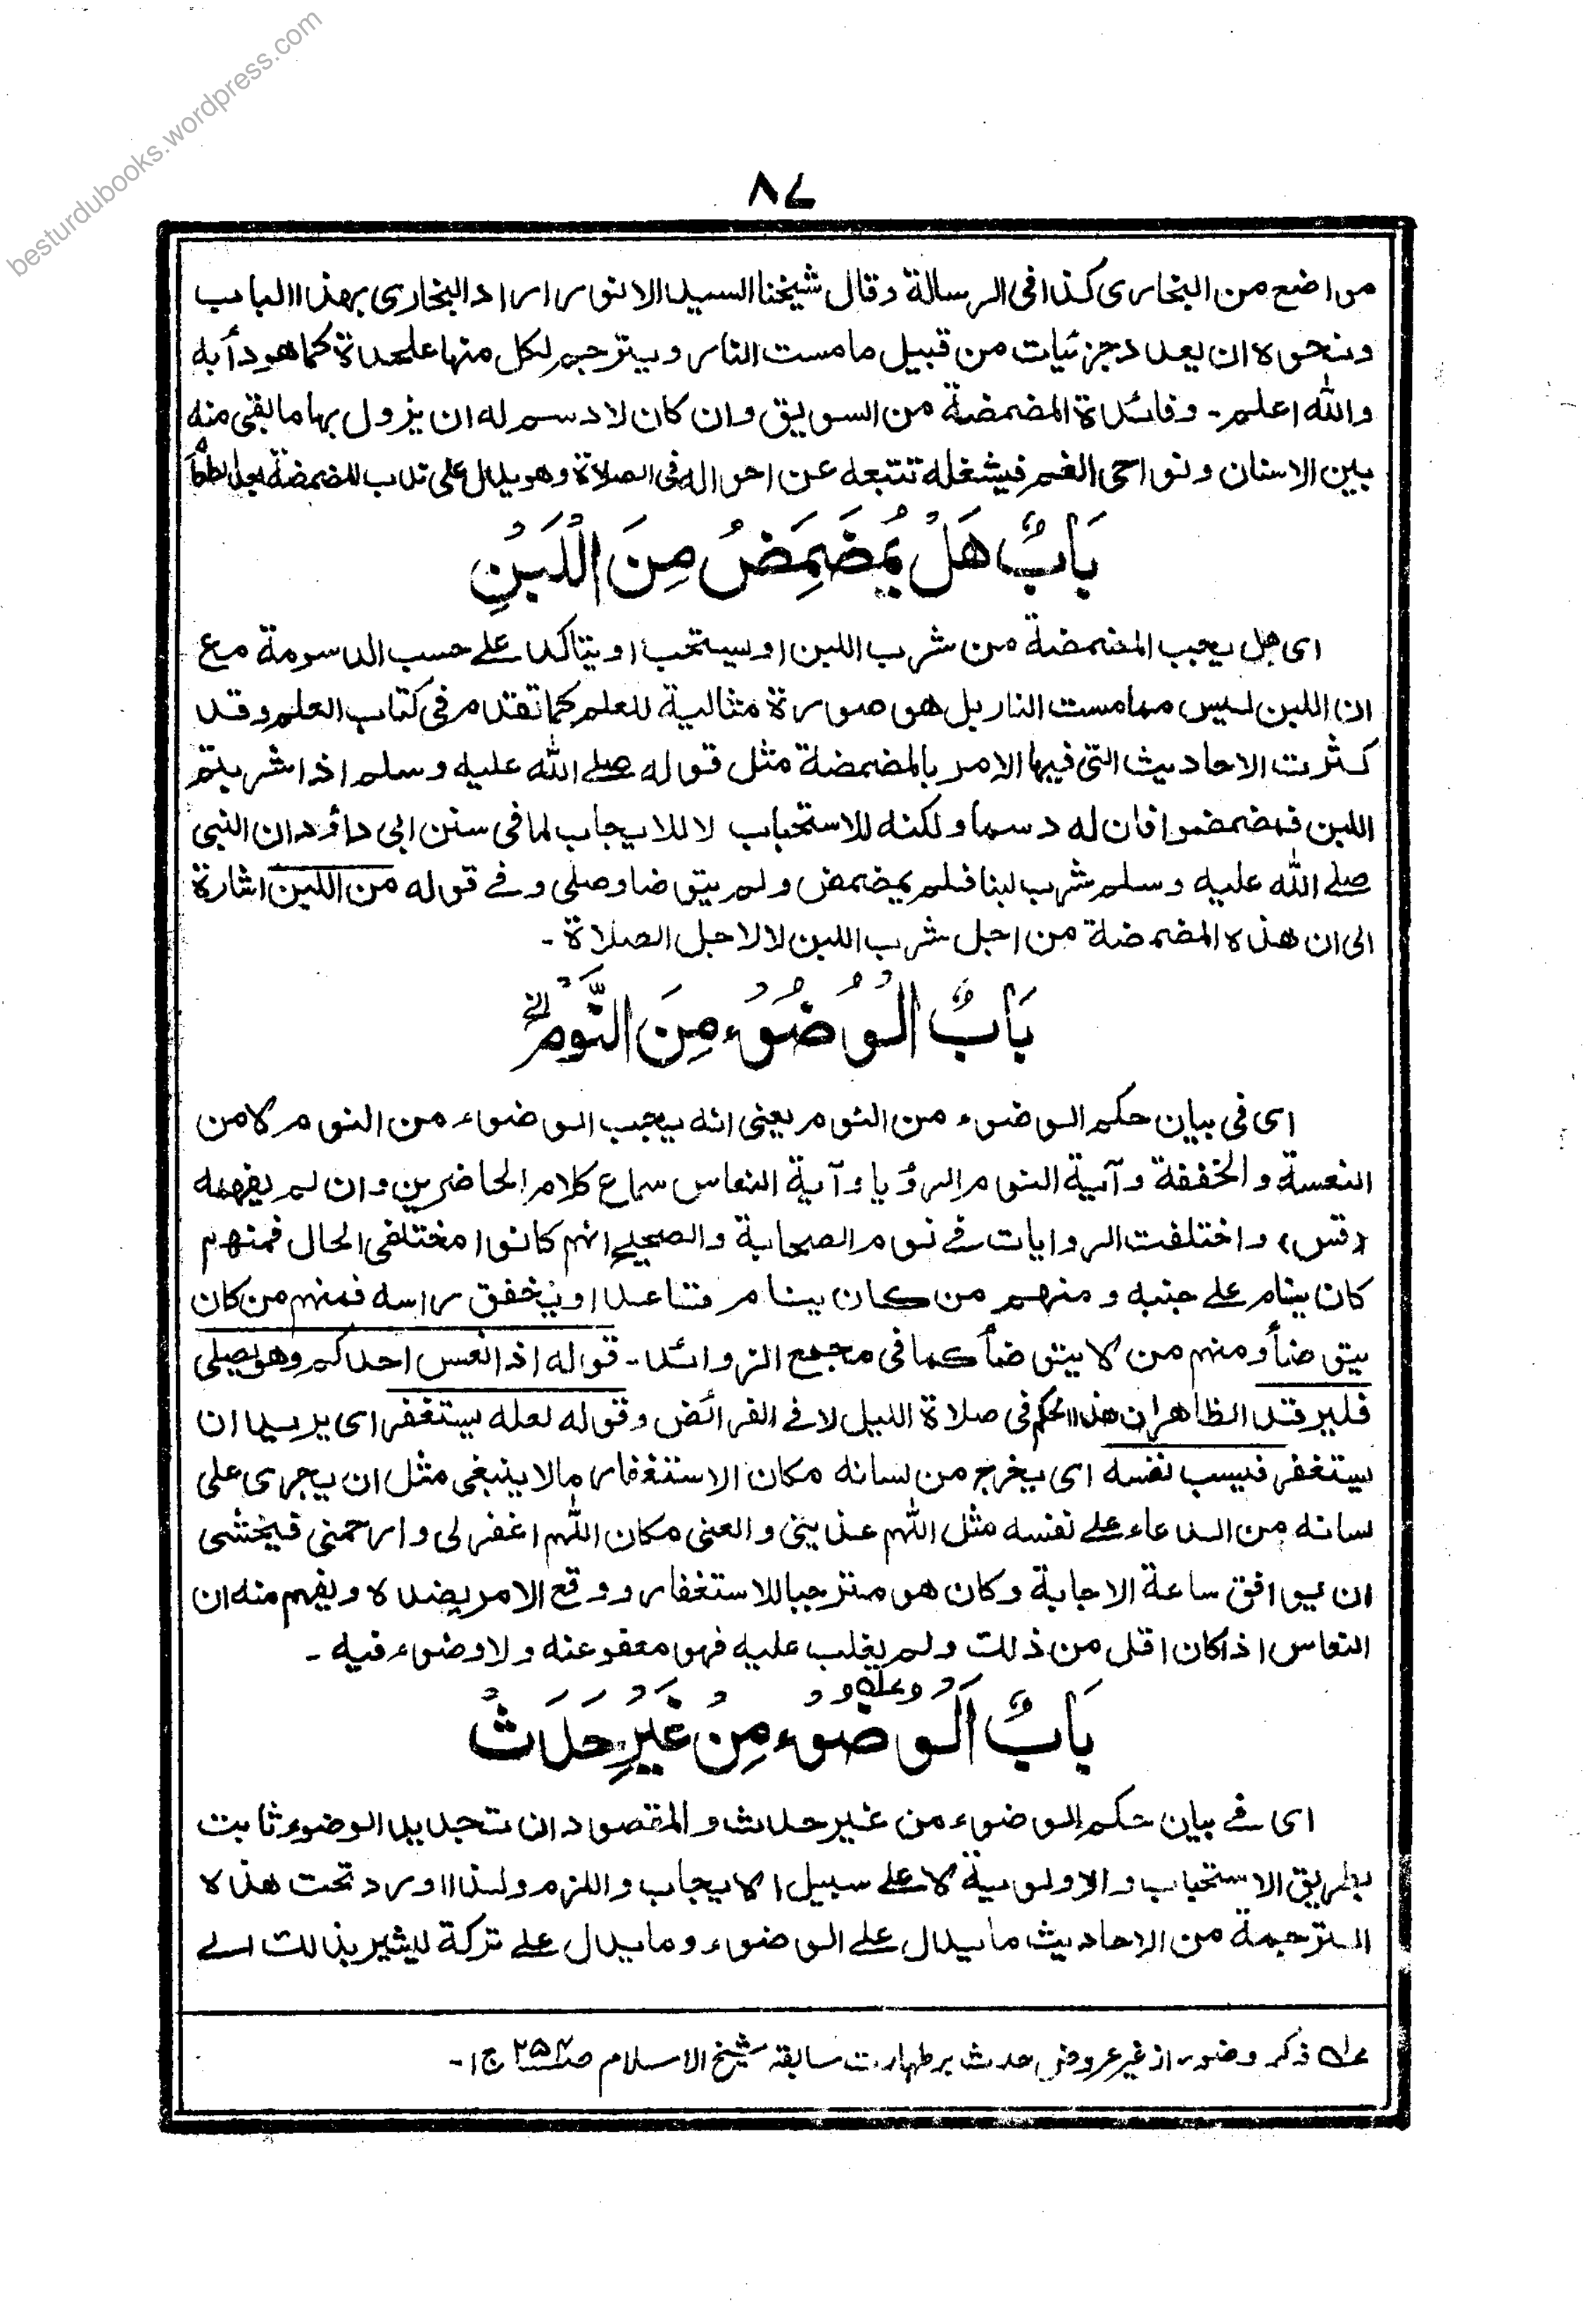 besturdubooks.wordpress.com
٨٧
مواضع من البخارى كذا فى الرسالة وقال شيخنا السيد الانور اراد البخارى بهذا الباب
ونحوه ان يعدد جزئيات من قبيل ما مست النار ويترجم لكل منها علىحدة كما هو دأبه
والله اعلم - وفائدة المضمضة من السويق وان كان لا دسم له ان يزول بها ما بقى منه
بين الاسنان ونواحى الفم فيشغله تتبعه عن احواله فى الصلاة وهو يدل على ندب المضمضة بعد الطعام
بَابٌ هَلْ يُمَضْمِضُ مِنَ اللَّبَنِ
اى هل يجب المضمضة من شرب اللبن او يستحب او يتاكد على حسب الدسومة مع
ان اللبن ليس مما مست النار بل هو صورة مثالية للعلم كما تقدم فى كتاب العلم وقد
كثرت الاحاديث التى فيها الامر بالمضمضة مثل قوله صلى الله عليه وسلم اذا شربتم
اللبن فمضمضوا فان له دسما ولكنه للاستحباب لا للايجاب لما فى سنن ابى داؤد ان النبى
صلى الله عليه وسلم شرب لبنا فلم يمضمض ولم يتوضا وصلى وفى قوله من اللبن اشارة
الى ان هذه المضمضة من اجل شرب اللبن لا لاجل الصلاة -
بَابُ الْوُضُوْءِ مِنَ النَّوْمِ الخ
اى فى بيان حكم الوضوء من النوم يعنى انه يجب الوضوء من النوم لا من
النعسة والخفقة وآية النوم الرؤيا وآية النعاس سماع كلام الحاضرين وان لم يفهمه
(قس) واختلفت الروايات فى نوم الصحابة والصحيح انهم كانوا مختلفى الحال فمنهم
كان ينام على جنبه ومنهم من كان ينام قاعدا او يخفق راسه فمنهم من كان
يتوضأ ومنهم من لا يتوضأ كما فى مجمع الزوائد - قوله اذا نعس احدكم وهو يصلى
فليرقد الظاهر ان هذا الحكم فى صلاة الليل لا فى الفرائض وقوله لعله يستغفر اى يريد ان
يستغفر فيسب نفسه اى يخرج من لسانه مكان الاستغفار ما لا ينبغى مثل ان يجرى على
لسانه من الدعاء على نفسه مثل اللهم عذبنى والعنى مكان اللهم اغفر لى وارحمنى فيخشى
ان يوافق ساعة الاجابة وكان هو مترجيا للاستغفار ووقع الامر بضده ويفهم منه ان
النعاس اذا كان اقل من ذلك ولم يغلب عليه فهو معفو عنه ولا وضوء فيه -
بَابُ الْوُضُوْءِ مِنْ غَيْرِ حَدَثٍ
اى فى بيان حكم الوضوء من غير حدث والمقصود ان تجديد الوضوء ثابت
بطريق الاستحباب والاولوية لا على سبيل الايجاب واللزوم ولذا اورد تحت هذه
الترجمة من الاحاديث ما يدل على الوضوء وما يدل على تركة ليشير بذلك الى
عله ذكر وضوء از غير عروض حدث بر طهارت سابقه شيخ الاسلام ص٢٥٢ ج١-